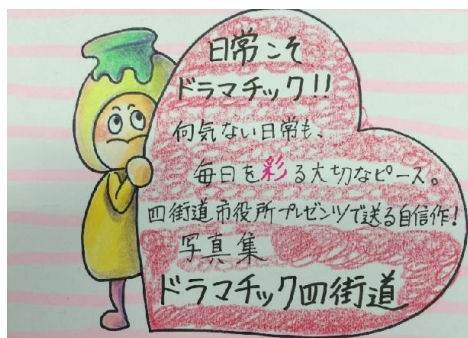 日常こそ
ドラマチック!!
何気ない日常も、
毎日を彩る大切なピース。
四街道市役所プレゼンツで送る自信作!
写真集
ドラマチック四街道